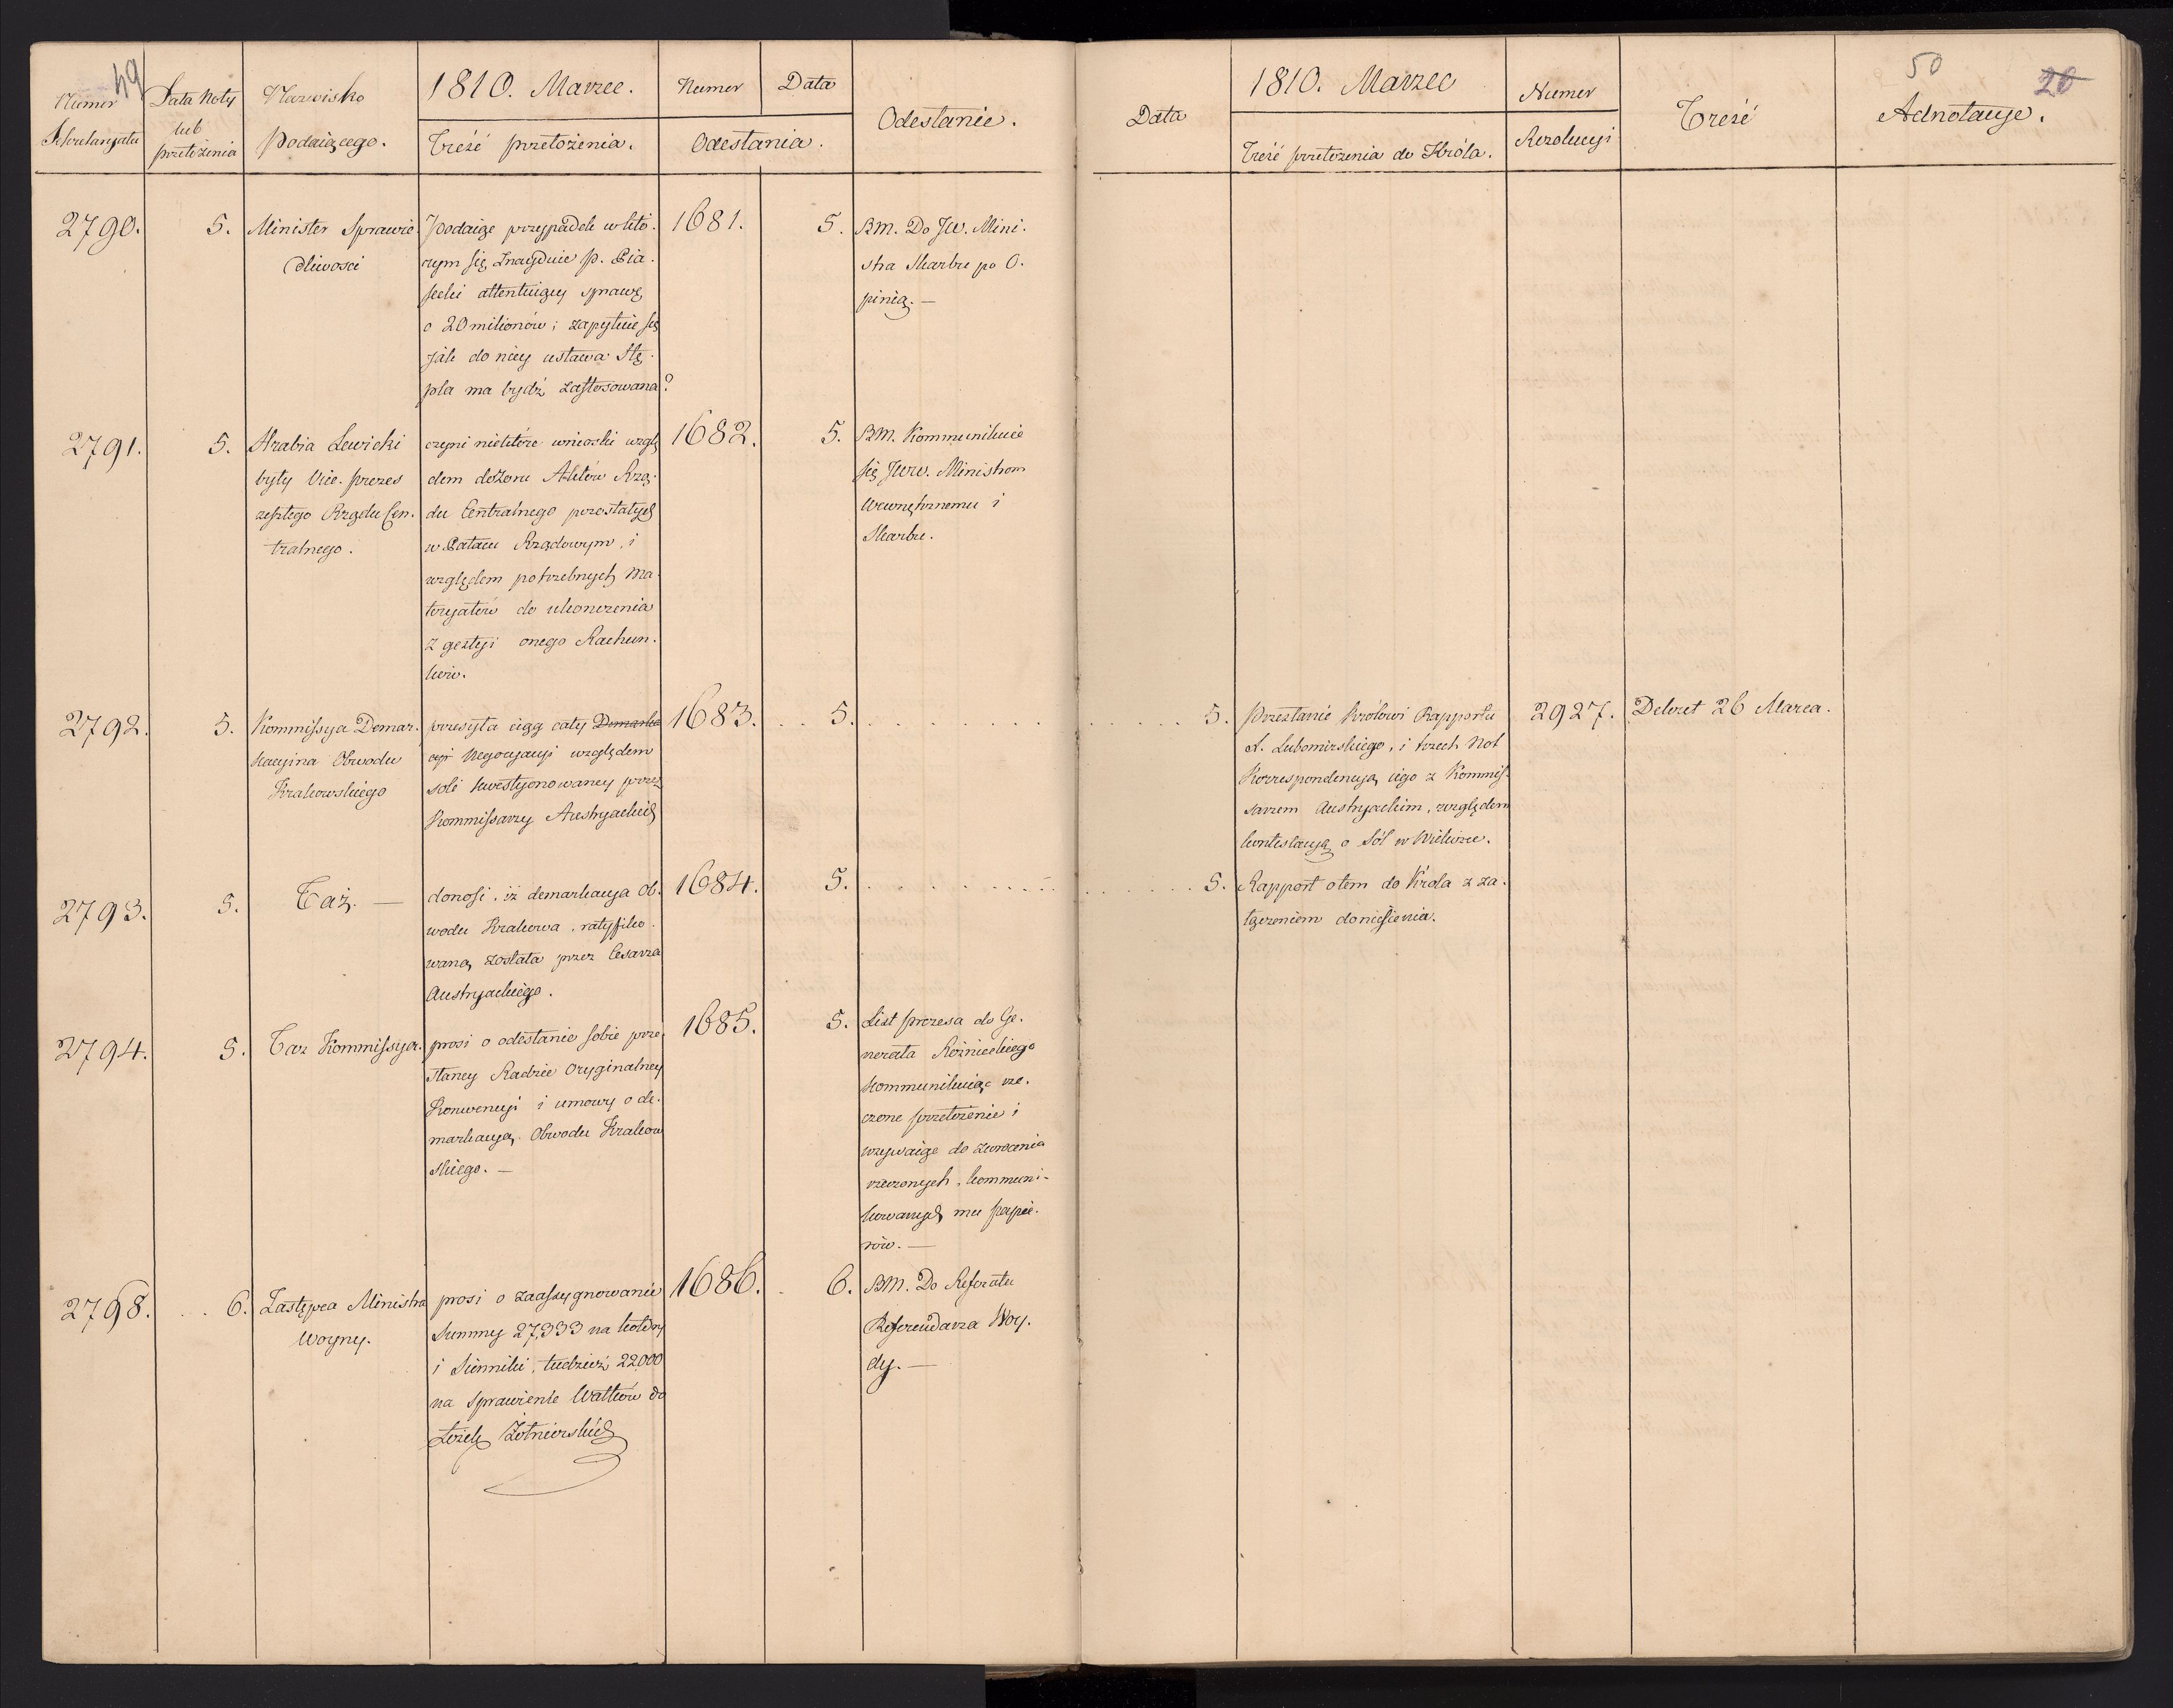 49
Numer
Sekretaryatu
Data Noty
lub
przełożenia
Nazwisko
Podaiącego.
1810. Marzec.
Treść przełożenia.
Numer
Data
Odesłania.
Odesłanie.
2790.
5.
Minister Sprawie-
dliwości
Podaiąc przypadek w któ-
rym się znayduie P. Pia-
secki attentuiący sprawę
o 20 milionów; zapytuie się
jak do niey ustawa Stę-
pla ma bydź zastosowana?
1681.
5.
BM. Do JW. Mini-
stra Skarbu po O-
pinią. —
2791.
5.
Hrabia Lewicki
były Vice-prezes
zeszłego Rządu Cen-
tralnego.
czyni niektóre wnioski wzglę
dem dozoru Aktów Rzą-
du Centralnego pozostałych
w Pałacu Rządowym, i
względem potrzebnych Ma-
teryałów do ukończenia
z gestyi onego Rachun-
ków.
1682.
5.
BM. Kommunikuie
się JWW. Ministrom
Wewnętrznemu i
Skarbu.
2792.
5.
Kommissya Demar-
kacyina Obwodu
Krakowskiego
przesyła ciąg cały Demarka
cyi Negocyacyi względem
soli kwestyonowaney przez
Kommissarzy Austryackich
1683.
5.
2793.
5.
Taż. —
donosi, iż demarkacya Ob-
wodu Krakowa, ratyfiko-
waną została przez Cesarza
Austryackiego.
1684.
5.
2794.
5.
Taż Kommissya.
prosi o odesłanie sobie prze-
słaney Radzie Oryginalney
Konwencyi i umowy o de-
markacyą Obwodu Krakow
skiego. —
1685.
5.
List Prezesa do Ge-
nerała Rożnieckiego
kommunikuiąc rze-
czone przełożenie i
wzywaiąc do zwrócenia
rzeczonych, kommuni-
kowanych mu papie-
rów. —
2798.
6.
Zastępca Ministra
Woyny.
prosi o zaassygnowanie
Summy 27,333 na kołdry
i Sienniki, tudzież 22000
na sprawienie Wałków do
Łóżek Żołnierskich
1686.
6.
BM. Do Referatu
Referendarza Woy-
dy. —
50
20
Data
1810. Marzec
Treść przełożenia do Króla.
Numer
Rezolucyi
Treść
Adnotacye.
5.
Przesłanie Królowi Rapportu
X. Lubomirskiego, i trzech Not
Korrespondencyą iego z Kommis-
sarzem Austryackim, względem
kontestacyą o Sól w Wieliczce.
2927.
Dekret 26 Marca.
5.
Rapport o tem do Króla z za-
łączeniem doniesienia.